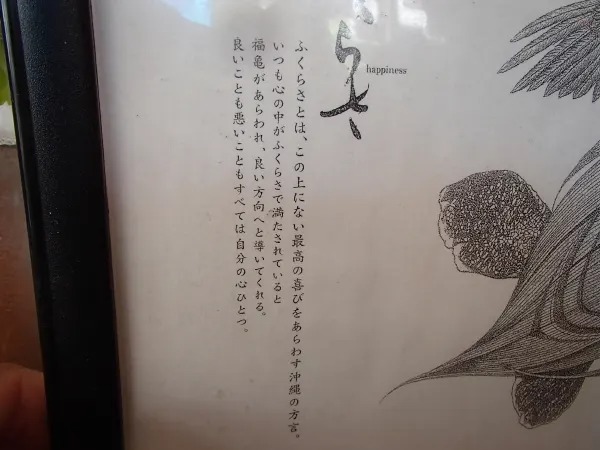 くらさ
happiness
ふくらさとは、この上にない最高の喜びをあらわす沖縄の方言。
いつも心の中がふくらさで満たされていると
福亀があらわれ、良い方向へと導いてくれる。
良いことも悪いこともすべては自分の心ひとつ。